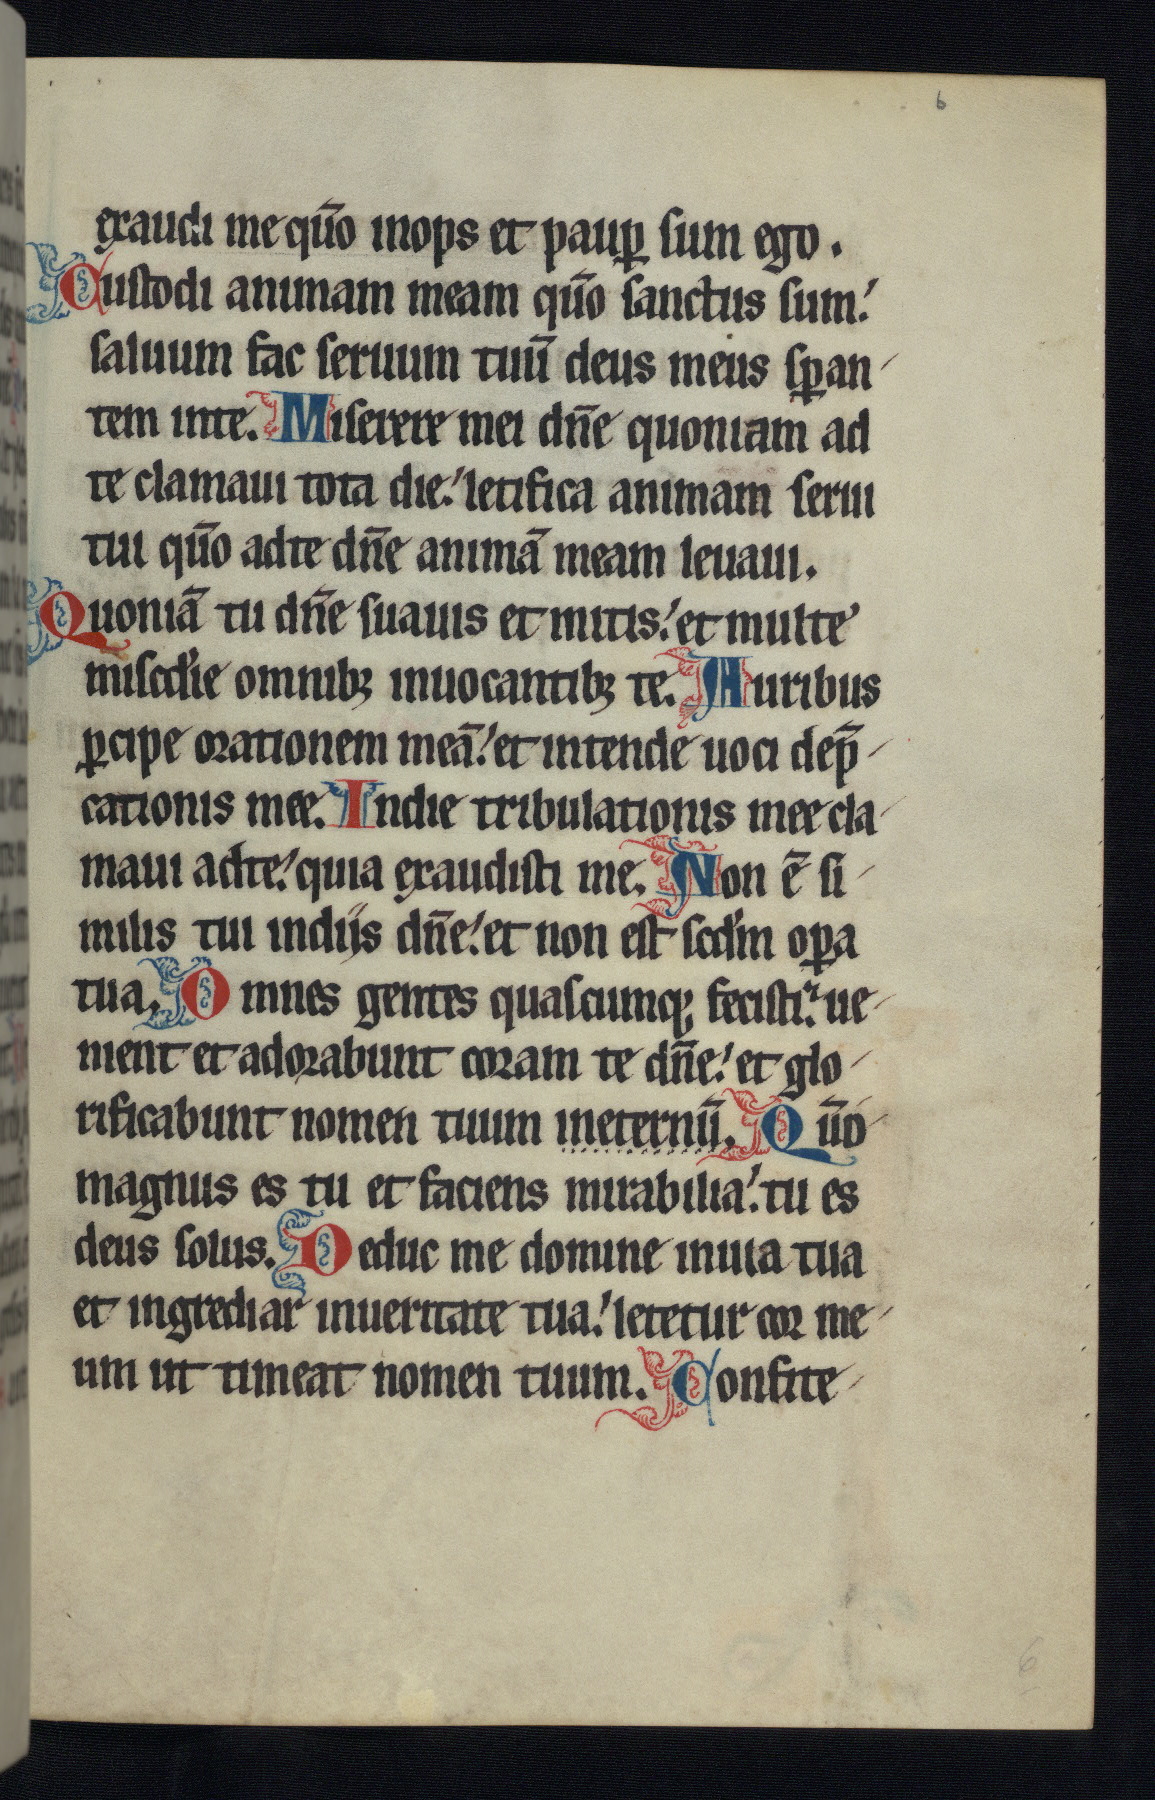 6
exaudi me qūo inops et paup̲ sum ego.
Custodi animam meam qūo sanctus sum:
saluum fac seruum tuū deus meus sp̲an-
tem inte. Miserere mei dn̄e quoniam ad
te clamaui tota die: letifica animam serui
tui qūo adte dn̄e animā meam leuaui.
Quoniā tu dn̄e suauis et mitis: et multe
misc̄die omnibꝫ inuocantibꝫ te. Auribus
ꝑcipe orationem meā: et intende uoci dep̄-
cationis mee. Indie tribulationis mee cla-
maui adte: quia exaudisti me. Non ē si-
milis tui indijs dn̄e: et non est scd̄m oꝑa
tua. Omnes gentes quascumqꝫ fecisti: ue-
nient et adorabunt coram te dn̄e: et glo-
rificabunt nomen tuum ineternū. Qūo
magnus es tu et faciens mirabilia: tu es
deus solus. Deduc me domine inuia tua
et ingrediar inueritate tua: letetur cor me-
um ut timeat nomen tuum. Confite-
6